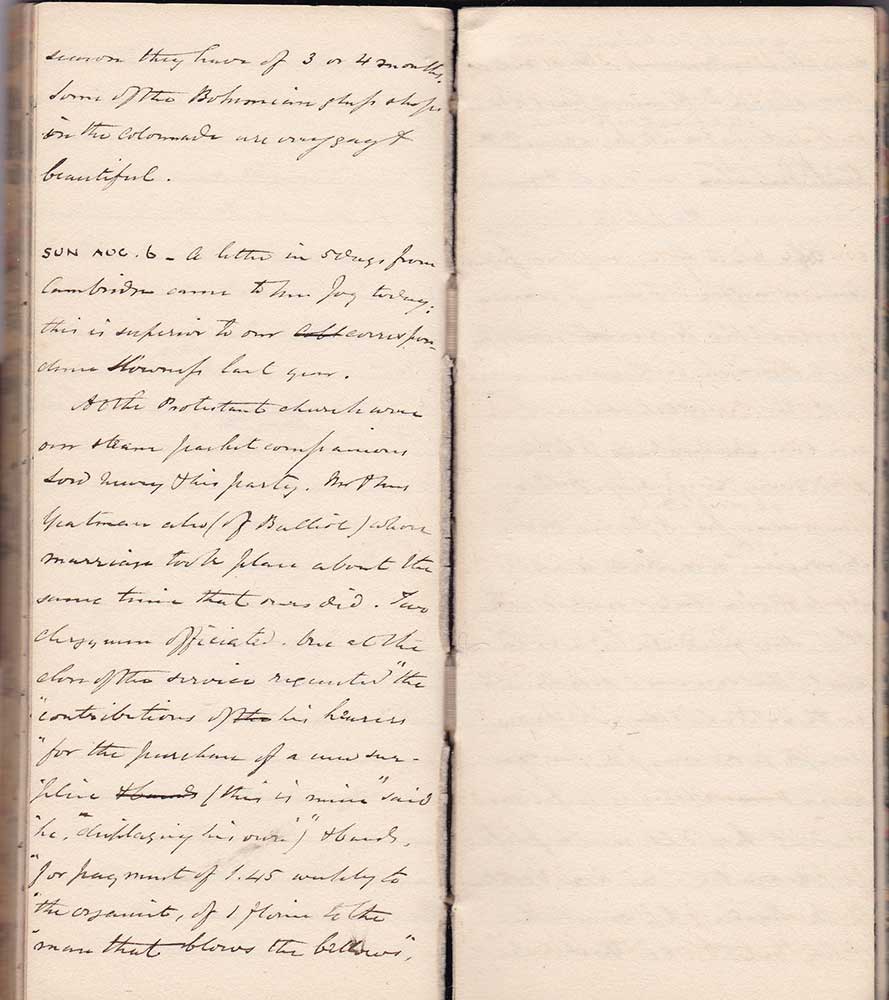 season they have of 3 or 4 months.
Some of the Bohemian glass shops
in the Colonnade are very gay &
beautiful.
SUN AUG. 6 – A letter in 5 days from
Cambridge came to Mrs Joy today;
this is superior to our correspon-
dence slowness last year.
At the Protestant church were
our steam packet companions
Lord & his party. Mr & Mrs
Yeatman also (of Balliol) whose
marriage took place about the
same time that ours did. Two
clergymen officiated. One at the
close of the service requested "the
"contributions of the his hearers
"for the purchase of a new sur-
"plice & bands (this is mine" said
he, "displaying his own") & bands,
"for payment of 1.45 weekly to
"the organist, of 1 florin to the
"man that blows the bellows",